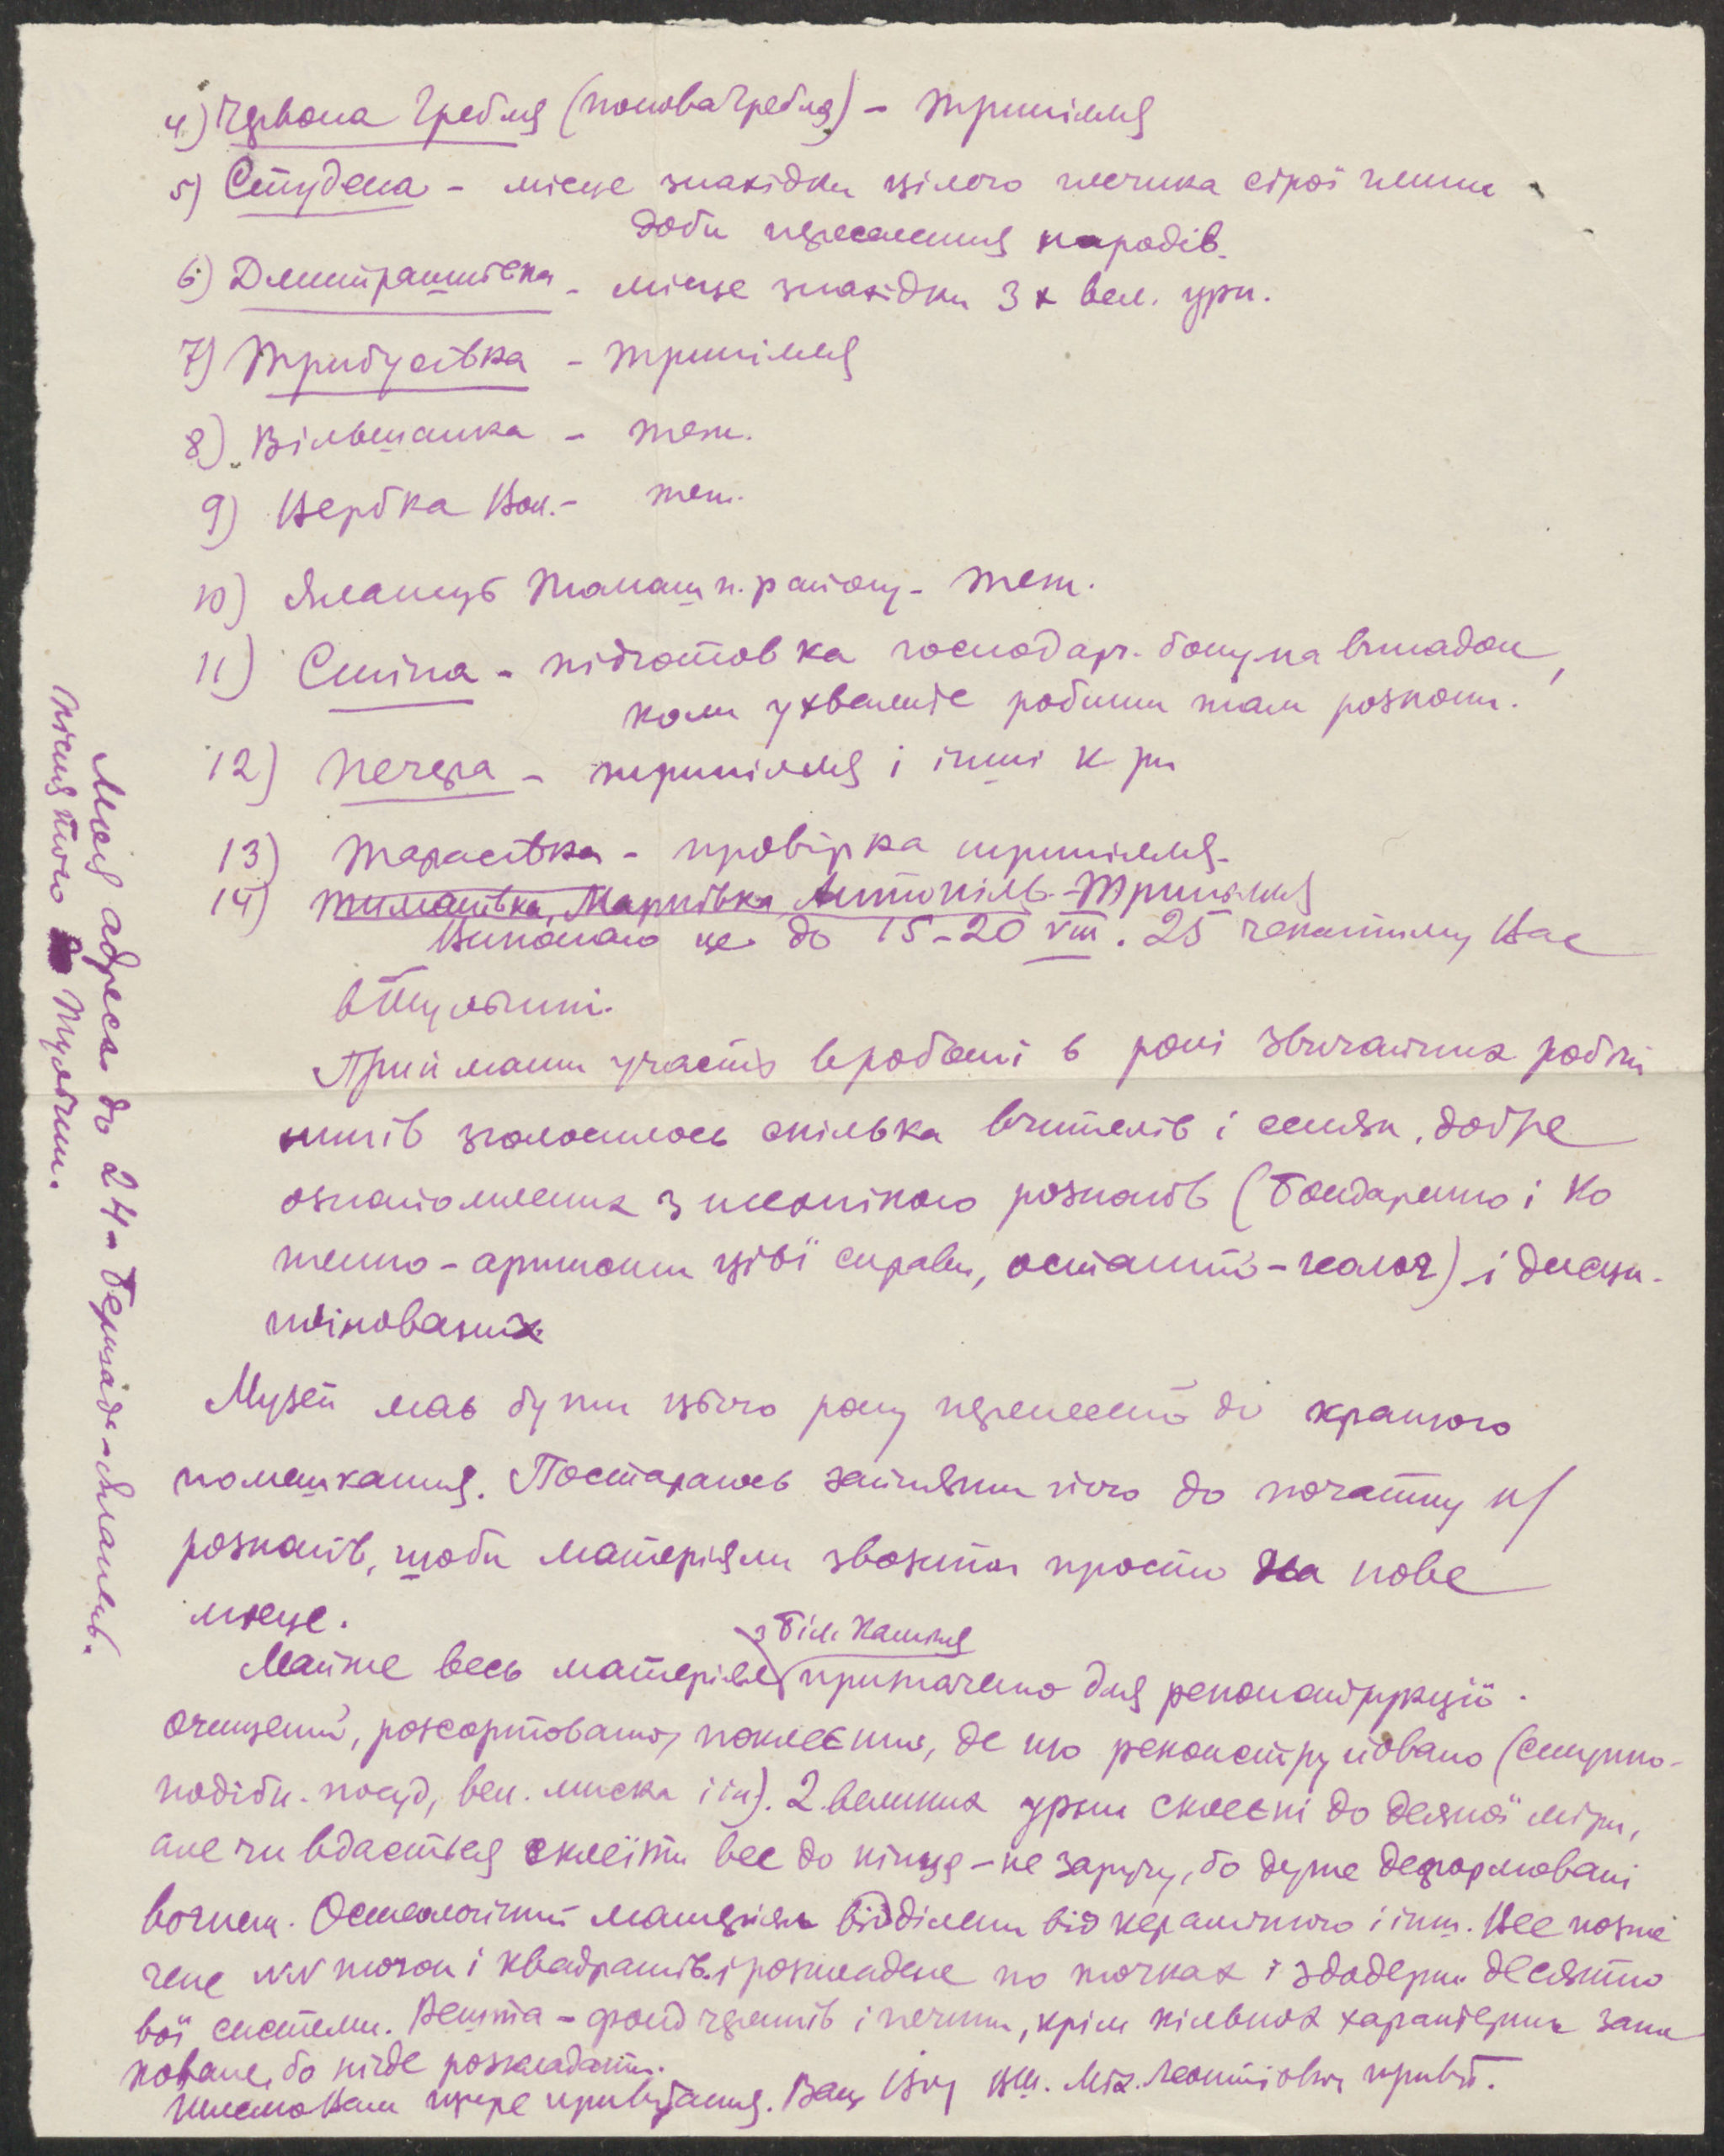 4) Червона Гребля (попова Гребля) – Трипілля
5) Студена – місце знахідки цілого глечика сірої глини
доби переселення народів.
6) Дмитрашківка – місце знахідки 3х вел. урн.
7) Трибусівка – Трипілля
8) Вільшанка – теж.
9) Вербка Вол. – теж.
10) Яланець Томашп. району – теж.
11) Стіна – підготовка господар. боку на випадок,
коли ухвалите робити там розкопи.
12) Печера – трипілля і інші к-ри
13) Тарасівка – провірка трипілля.
14) Тиманівка, Марківка, Антопіль – Трипілля
Виконаю це до 15–20 VIII. 25 чекатиму Вас
в Тульчині.
Приймати участь в роботі в ролі звичайних робіт
ників зголосилось скілька вчителів і селян, добре
ознайомлених з технікою розкопів (Бондаренко і Ко
тенко – аритони цієї справи, останній – геолог) і дисци-
плінованих.
Музей має бути цього року перенесений до кращого
помешкання. Постараюсь зайняти його до початку н/
розкопів, щоби матеріяли звозити просто на нове
місце.
Майже весь матеріял з Біл. Каміня призначено для реконструкції.
очищений, розсортовано, поклеєний, де що реконструйовано (ступко-
подібн. посуд, вел. миска і ін). 2 великих урни склеєні до деякої міри,
але чи вдасться склеїти все до кінця – не заручу, бо дуже деформовані
вогнем. Остеологічний матеріял відділени від керамічного і інш. Все позна
чене NN точок і квадратів і розкладене по точках і здодерж. десятко
вої системи. Решта – фонд черепків і печини, крім кількох характерних запа
коване, бо нігде розкладати.
Шлемо Вам щире привітання. Ваш В.ш. Міх. Леонтійович привіт.
Моя адреса до 24 – Бершадь – Яланець.
Після того Тульчин.